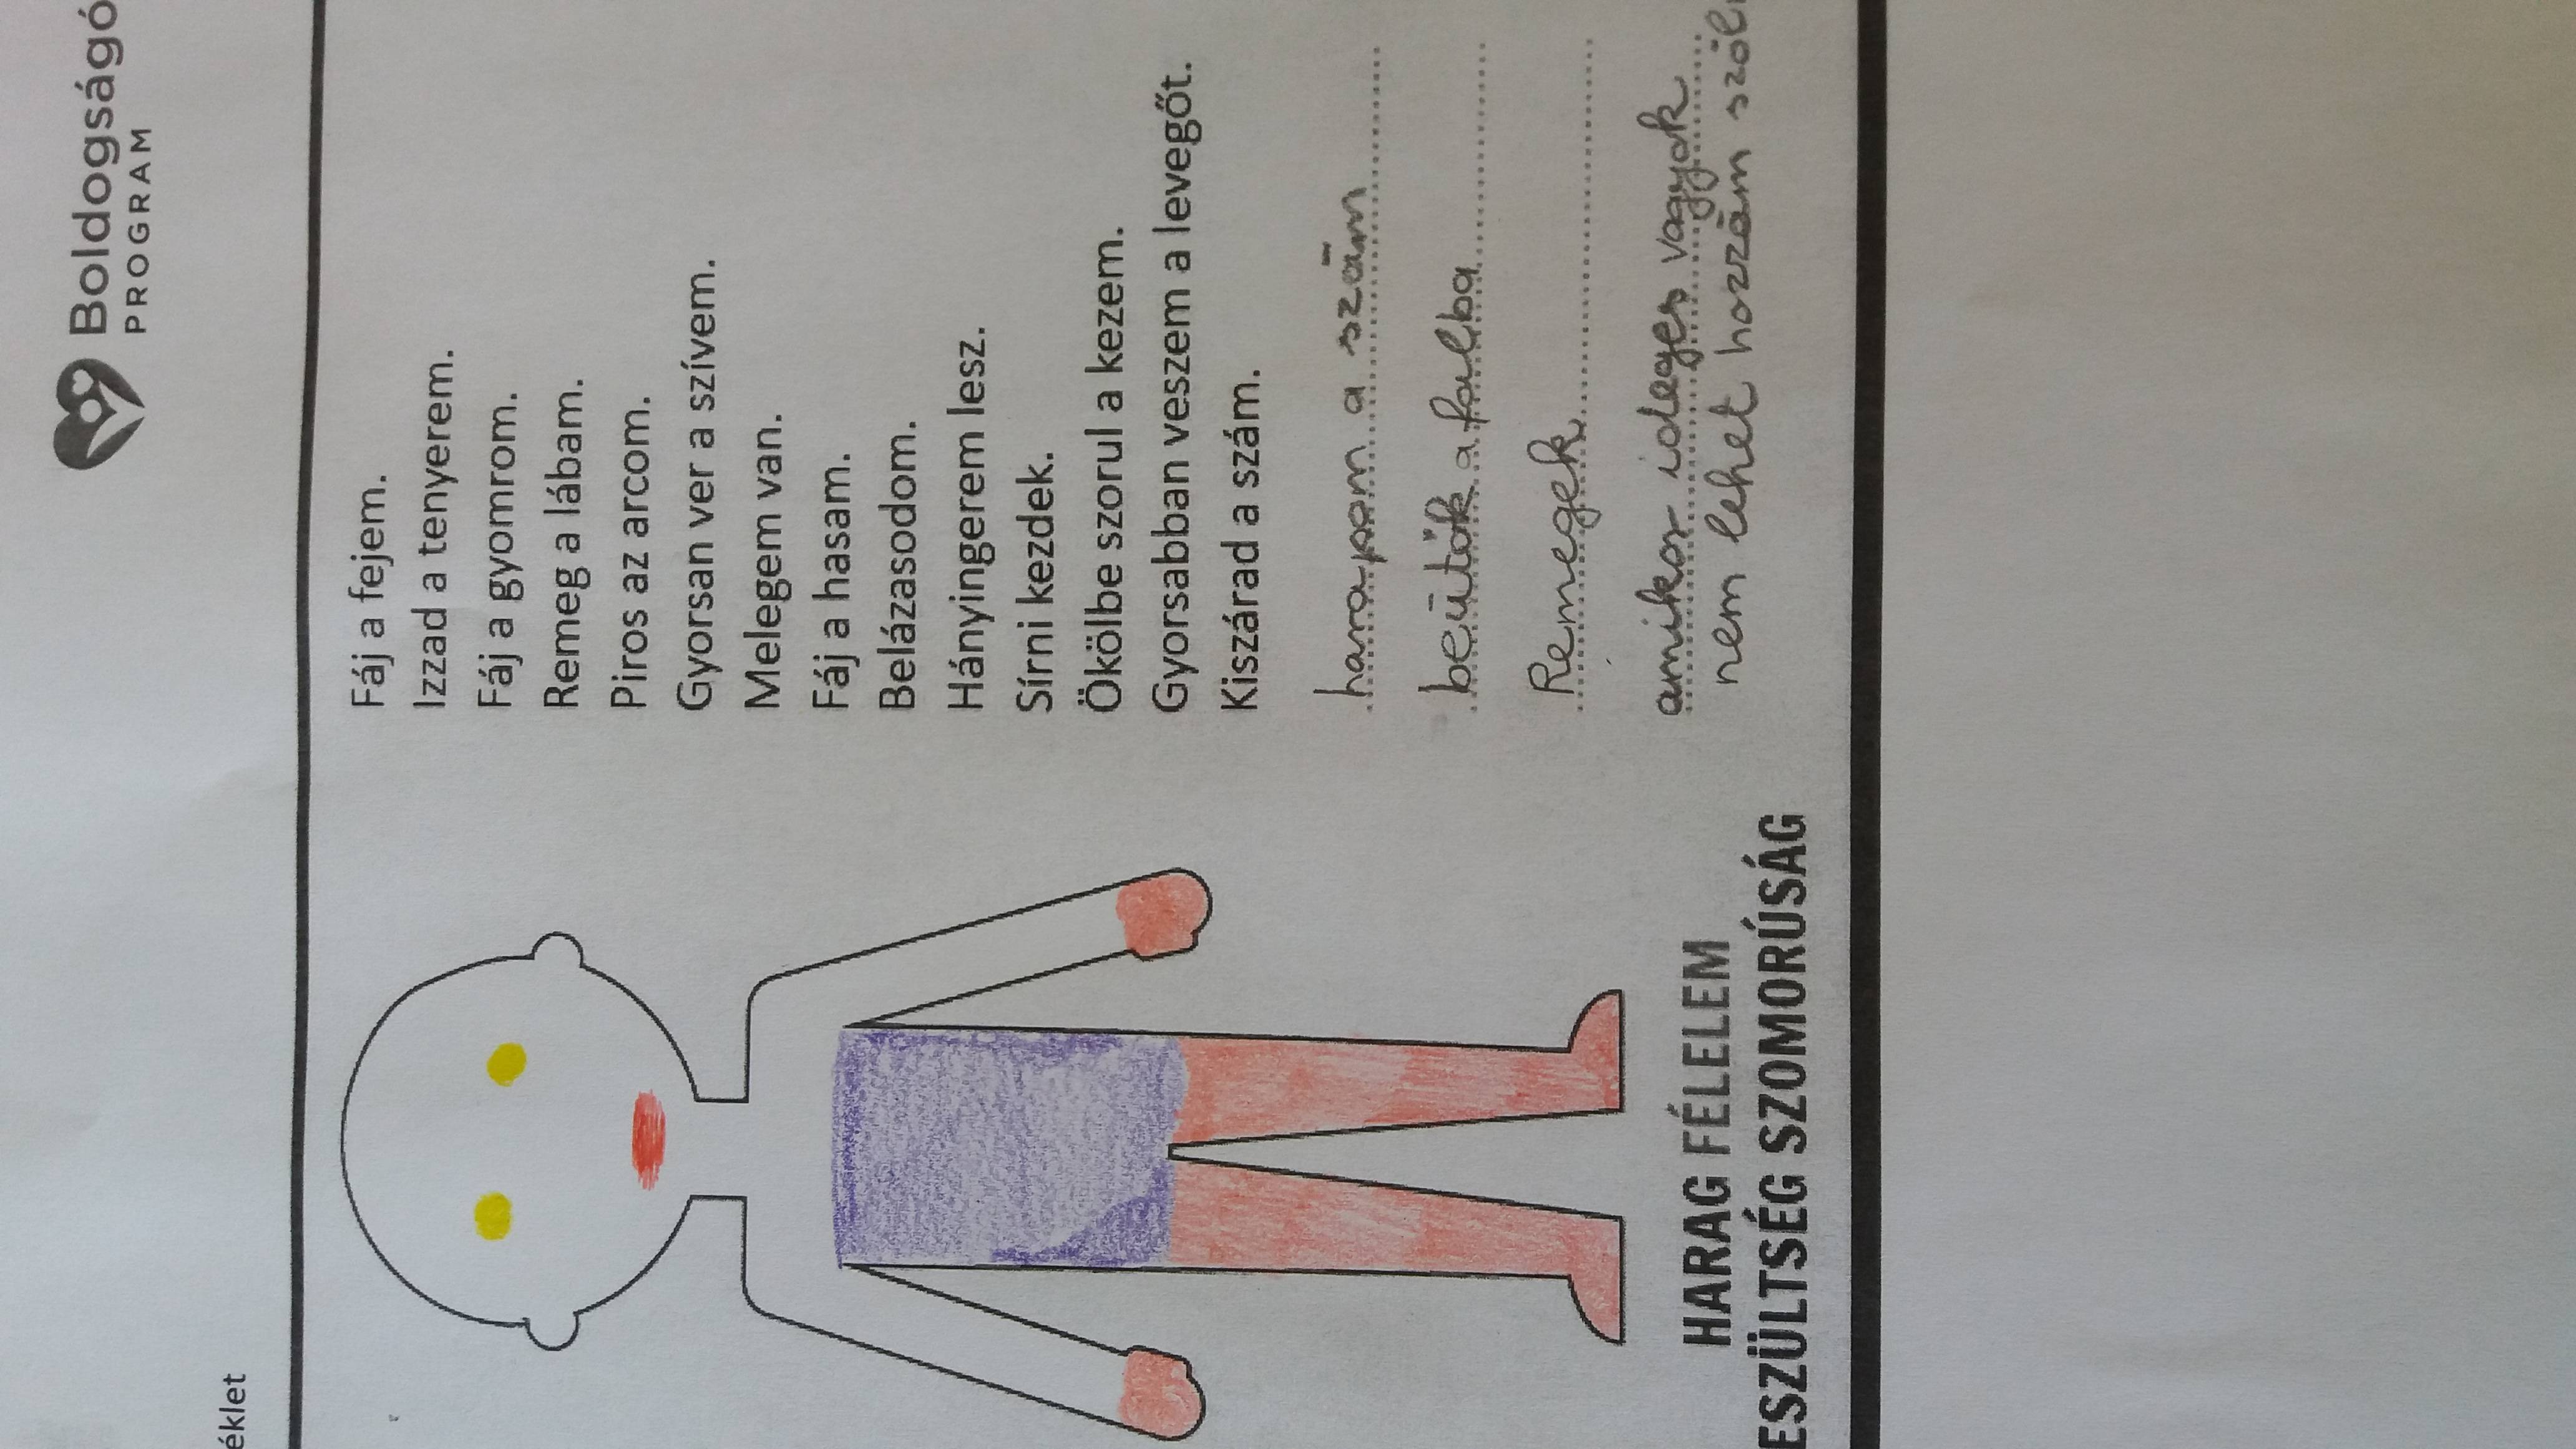 Boldogságó
PROGRAM
éklet
Fáj a fejem.
Izzad a tenyerem.
Fáj a gyomrom.
Remeg a lábam.
Piros az arcom.
Gyorsan ver a szívem.
Melegem van.
Fáj a hasam.
Belázasodom.
Hányingerem lesz.
Sírni kezdek.
Ökölbe szorul a kezem.
Gyorsabban veszem a levegőt.
Kiszárad a szám.
harapom a szám
beütök a falba
Remegek
amikor ideges vagyok
nem lehet hozzám szól
HARAG FÉLELEM
ESZÜLTSÉG SZOMORÚSÁG